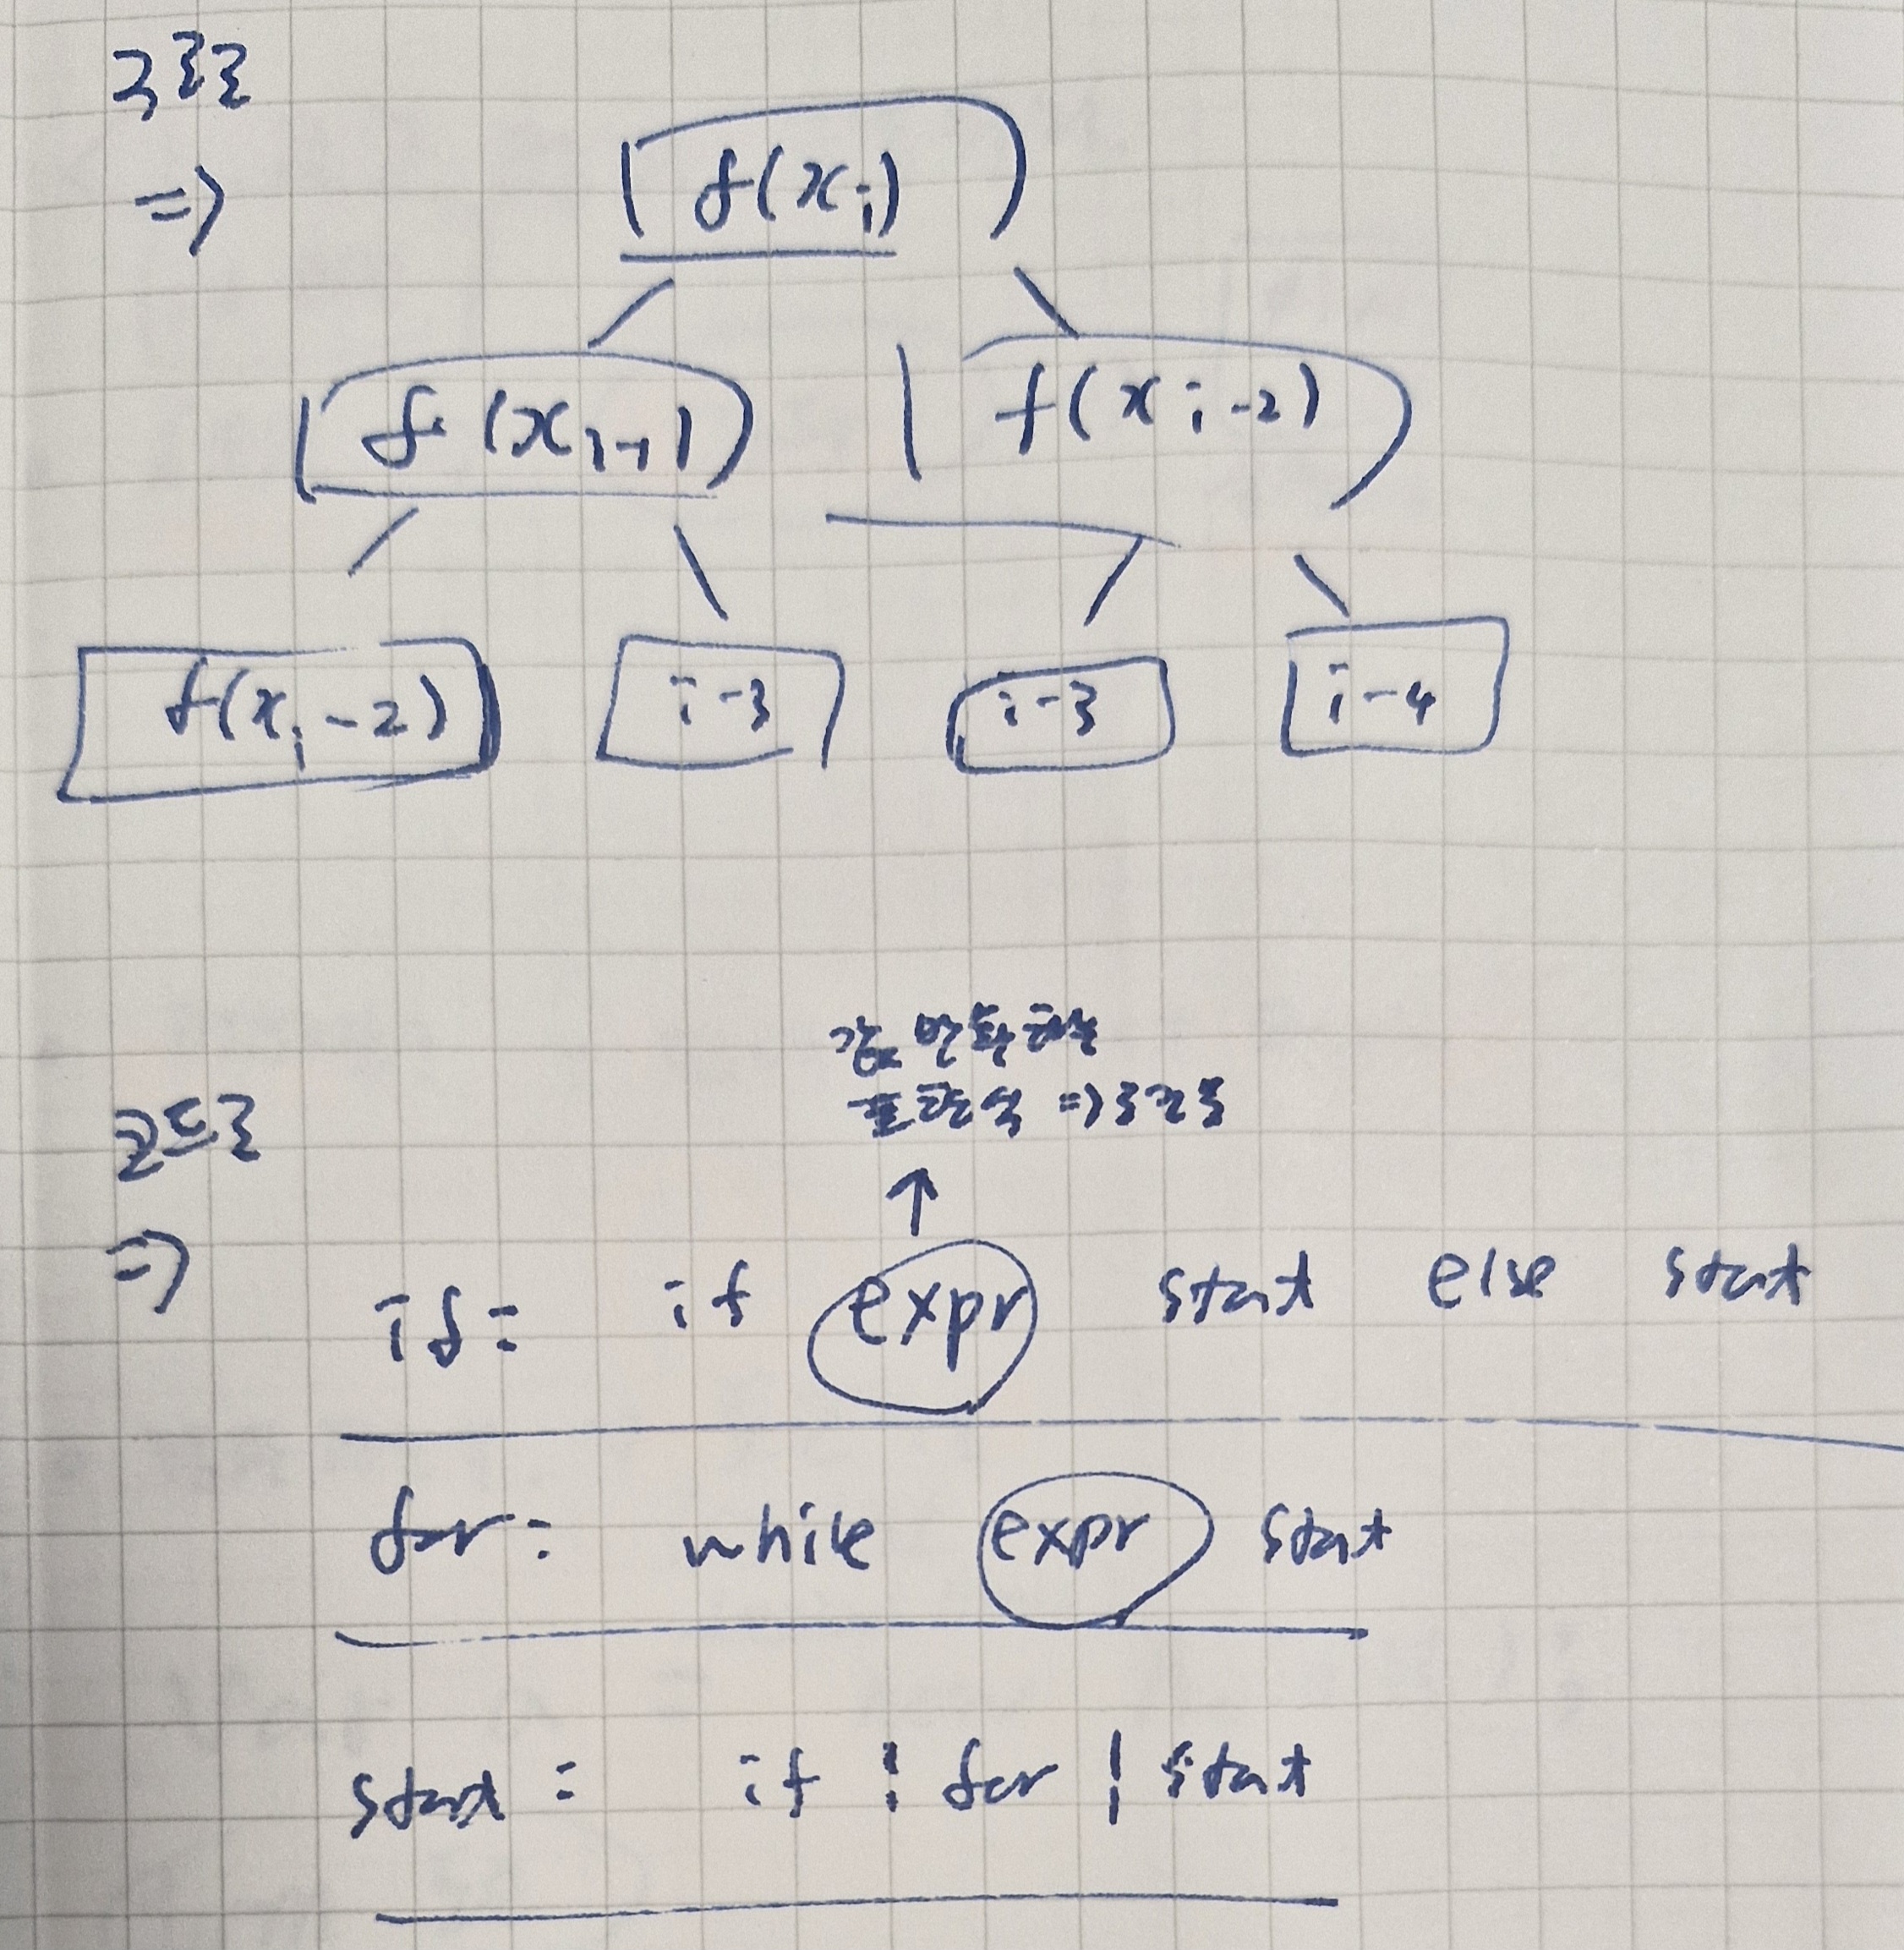 =>
f(xi)
f(xi-1) f(xi-2)
f(xi-2) i-3 i-3 i-4
값 반환하는
표현식 =>
코드로
=>
if = if expr start else start
for = while expr start
start = if | for | start